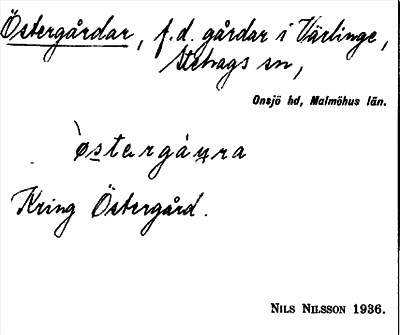 Östergårdar, f.d. gårdar i Värlinge,
Stehags sn,
Onsjö hd, Malmöhus län.
østərgáɹra
Kring Östergård.
NILS NILSSON 1936.